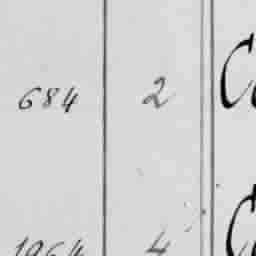 684 2
1964 4